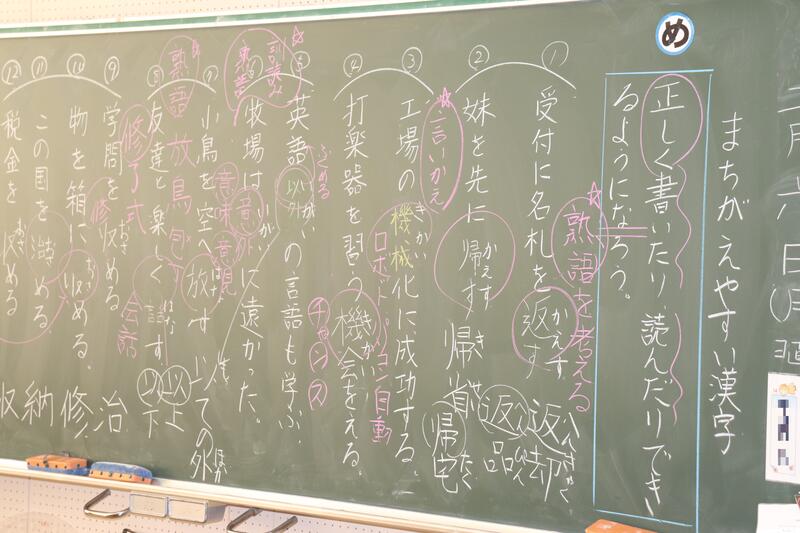 六日(月)
まちがえやすい漢字
め
正しく書いたり、読んだりでき
るようになろう。
☆熟語を考える
① 受付に名札を返す
かえす
返却
へんきゃく
返品
へんぴん
② 妹を先に帰す
かえす
帰省
きせい
帰宅
きたく
☆言いかえ
③ 工場の機械化に成功する。
きかい
ロボット
自動
④ 打楽器を習う機会をえる。
きかい
チャンス
⑤ 英語以外の言語も学ぶ
いがい
ふくめる
以上
以下
⑥ 牧場は意外に遠かった。
いがい
意味
意見
⑦ 小鳥を空へ放す
はなす
☆熟語
放鳥
⑧ 友達と楽しく話す
はなす
会話
⑨ 学問を修める
おさめる
修了式
⑩ 物を箱に収める。
おさ
⑪ この国を治める
⑫ 税金を
おさめる
治
修
納
収